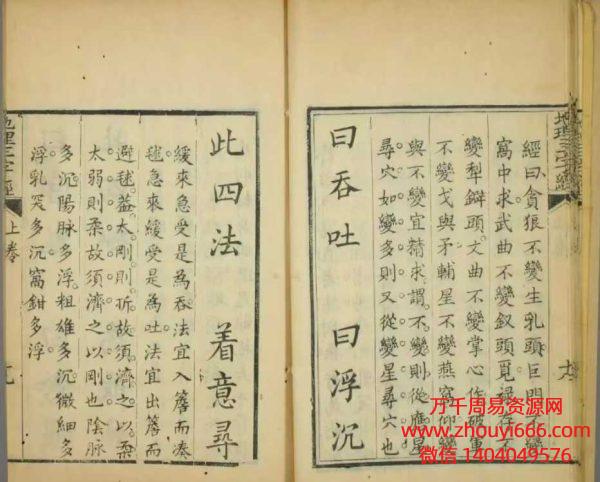 地理三字經
經曰貪狼不變生乳頭巨門不變
窩中求武曲不變釵頭覓祿存不
變犁鐴頭文曲不變掌心作破軍
不變戈與矛輔星不變燕窩仰變
與不變宜精求謂不變則從應星
尋穴如變多則又從變星尋穴也
曰吞吐 曰浮沉
此四法 着意尋
緩來急受是為吞法宜入簷而湊
毬急來緩受是為吐法宜出簷而
避毬蓋太剛則折故須濟之以柔
太弱則柔故須濟之以剛也陰脉
多沉陽脉多浮粗雄多沉微細多
浮乳突多沉窩鉗多浮
地理三字經 上卷
万千周易资源网
www.zhouyi666.com
微信 1404049576